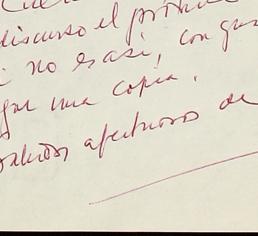 discurso el próximo
i no es así, con gus
gar una copia.
saludos afectuosos de